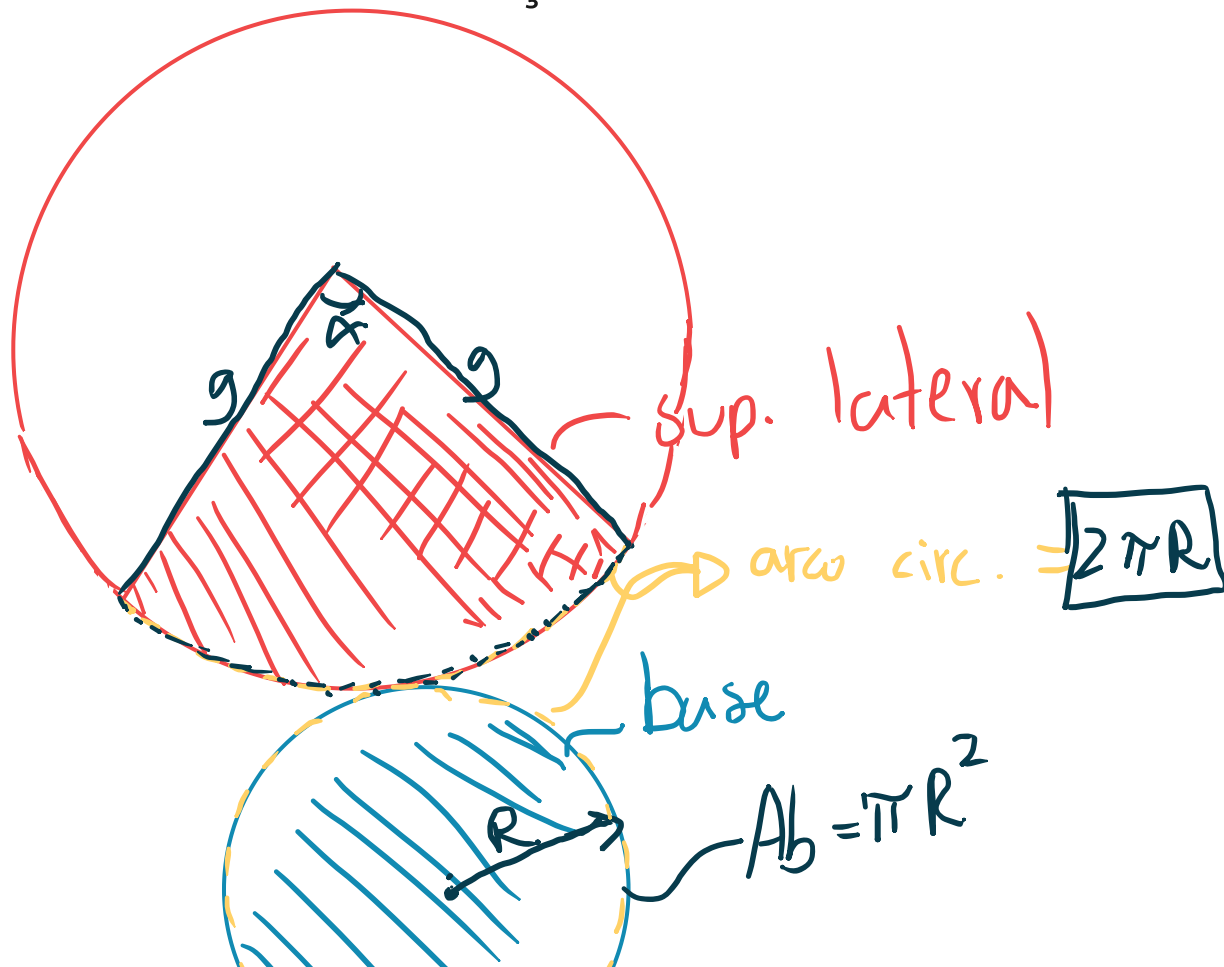 3
α
g
g
sup. lateral
arco circ. = 2πR
base
R
Ab = πR²